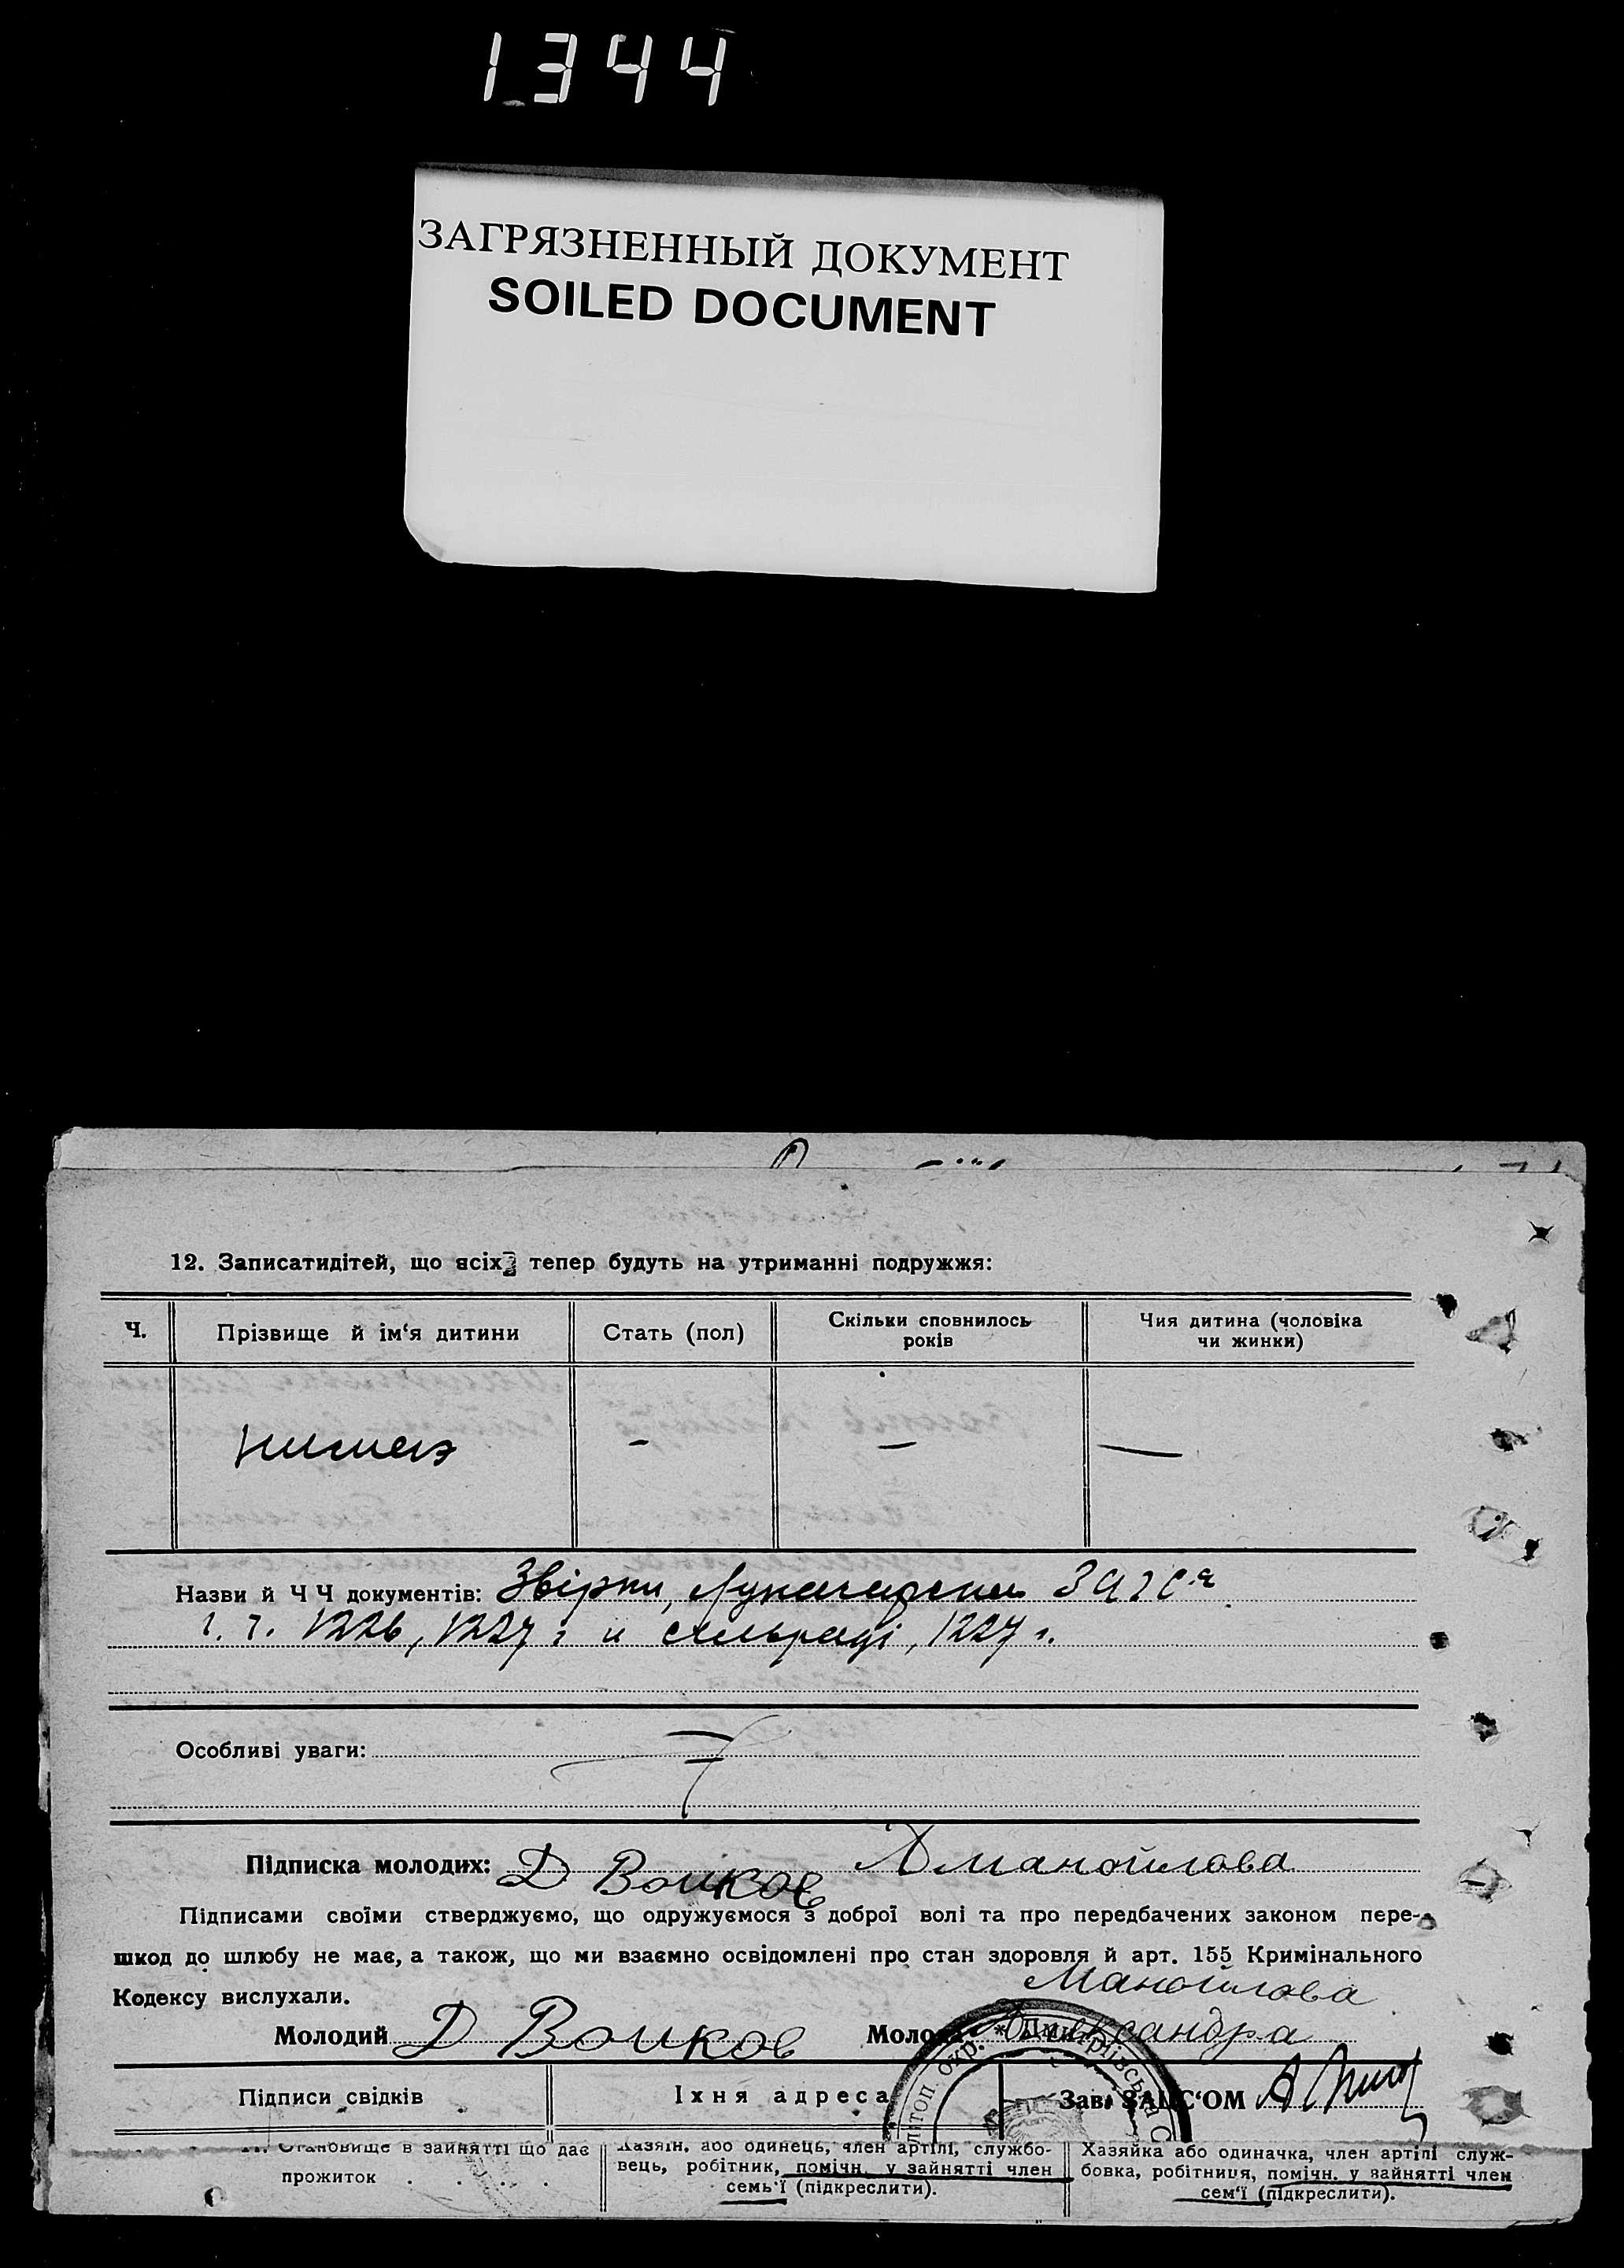 1344
ЗАГРЯЗНЕННЫЙ ДОКУМЕНТ
SOILED DOCUMENT
12. Записатидітей, що всіх тепер будуть на утриманні подружжя:
Ч.
Прізвище й ім‘я дитини
Стать (пол)
Скільки сповнилось
років
Чия дитина (чоловіка
чи жинки)
- — —
Назви й Ч Ч документів: Звірки,
1226, 1227 г. и сельраді, 1227 г.
Особливі уваги:
Підписка молодих: Д Воиков А Манойлова
Підписами своїми стверджуємо, що одружуємося з доброї волі та про передбачених законом пере-
шкод до шлюбу не має, а також, що ми взаємно освідомлені про стан здоровля й арт. 155 Кримінального
Кодексу вислухали.
Манойлова
Молодий Д Воиков Молода Александра
Підписи свідків
Їхня адреса
Зав. ЗАПС‘ОМ
Становище в зайнятті що дає
прожиток . . . .
Хазяїн, або одинець, член артілі, службо-
вець, робітник, помічн. у зайнятті член
семь‘ї (підкреслити).
Хазяйка або одиначка, член артілі служ-
бовка, робітниця, помічн. у зайнятті член
сем‘ї (підкреслити).